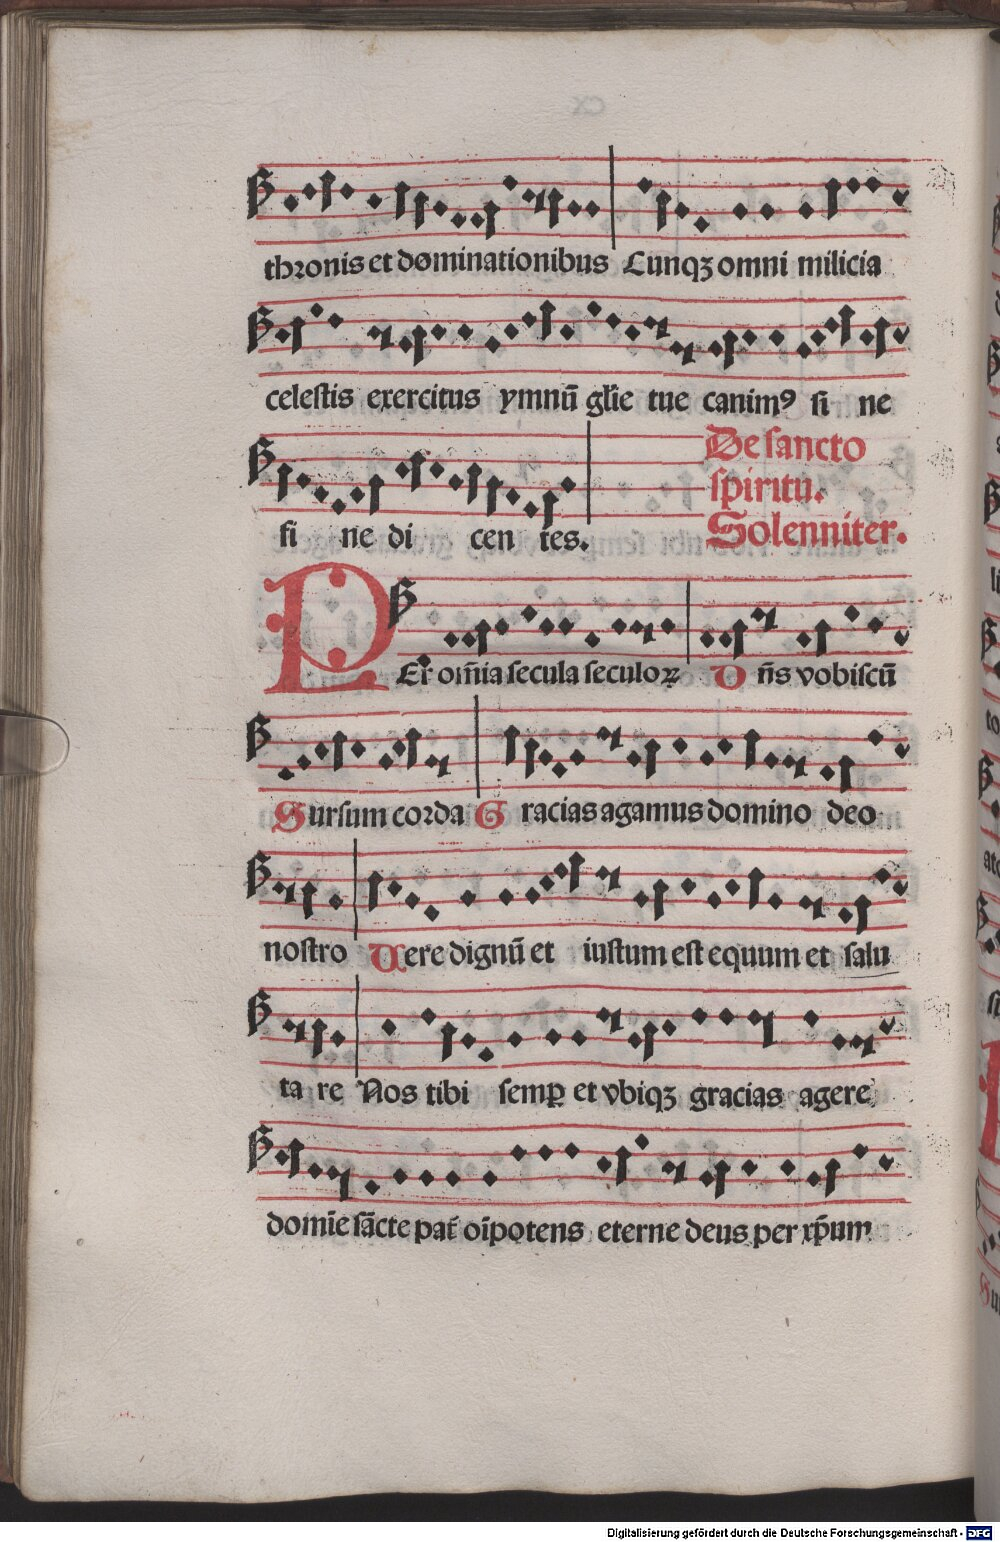 thronis et dominationibus Cunqꝫ omni milicia
celestis exercitus ymnū gl̄ie tue canimꝰ si ne
fi ne di cen tes.
De sancto
spiritu.
Solenniter.
PEr om̄ia secula seculoꝝ Dn̄s vobiscū
Sursum corda Gracias agamus domino deo
nostro Vere dignū et iustum est equum et salu
ta re Nos tibi semꝑ et vbiqꝫ gracias agere
domīe sācte pat̄ oīpotens eterne deus per xp̄um
Digitalisierung gefördert durch die Deutsche Forschungsgemeinschaft - DFG